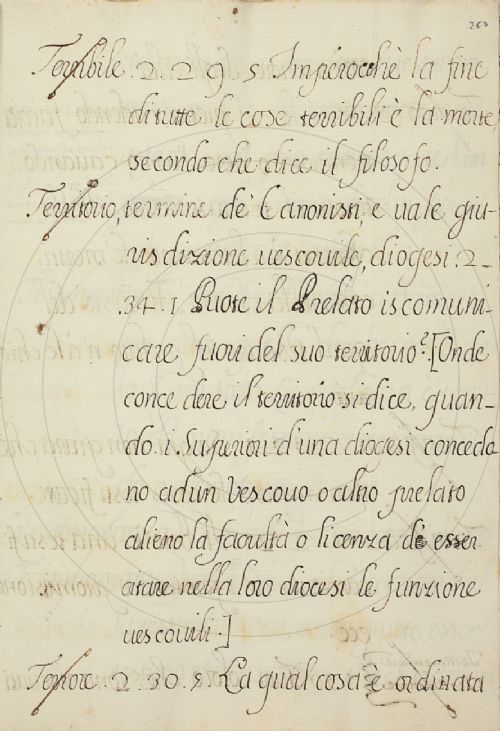 263
Terribile. 2. 29. 5 Imperocchè la fine
di tutte le cose terribili è la morte
secondo che dice il filosofo.
Territorio, termine de' Canonisti, e vale giu-
risdizione vescovile, diogesi. 2.
34. 1 Puote il Prelato iscomuni
care fuori del suo territorio? [Onde
concedere il territorio si dice, quan-
do i Superiori d'una diogesi conceda
no ad un Vescovo o altro prelato
alieno la facultà o licenza di eser
citare nella loro diocesi le funzione
vescovili.]
Terrore. 2. 30. 5 La qual cosa è ordinata